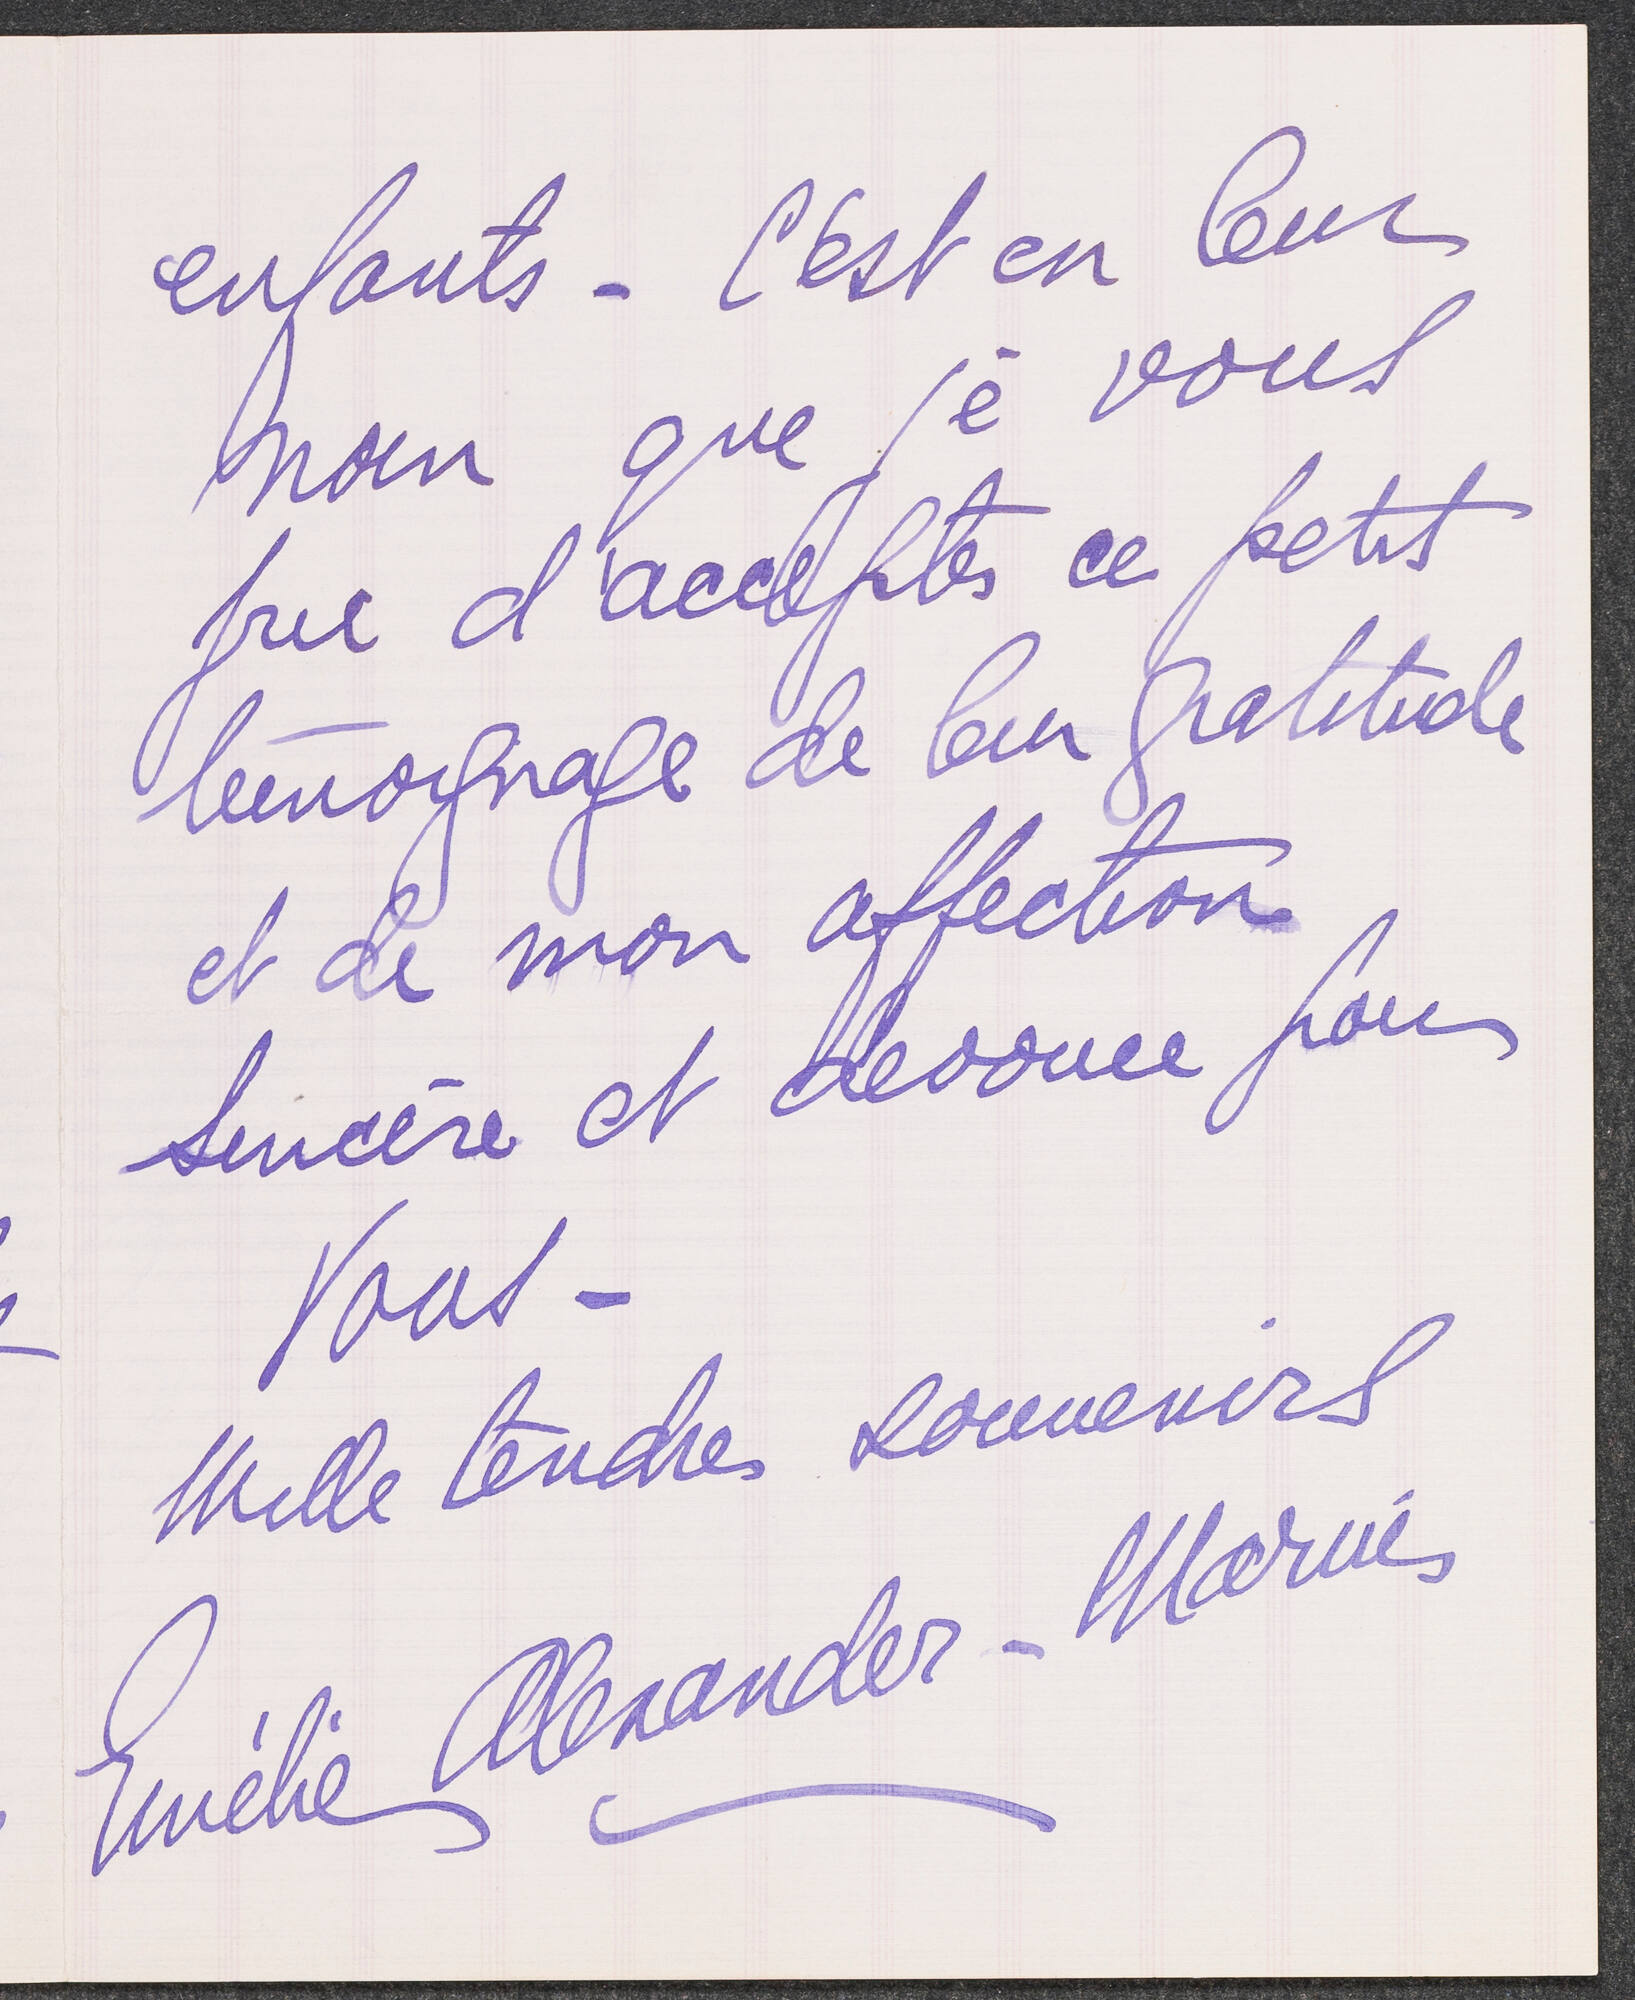 enfants - C'est en leur
nom que je vous
prie d'accepter ce petit
témoignage de leur gratitude
et de mon affection
sincère et dévouée pour
vous -
Mille tendres souvenirs
Emélie Alexander - Marius